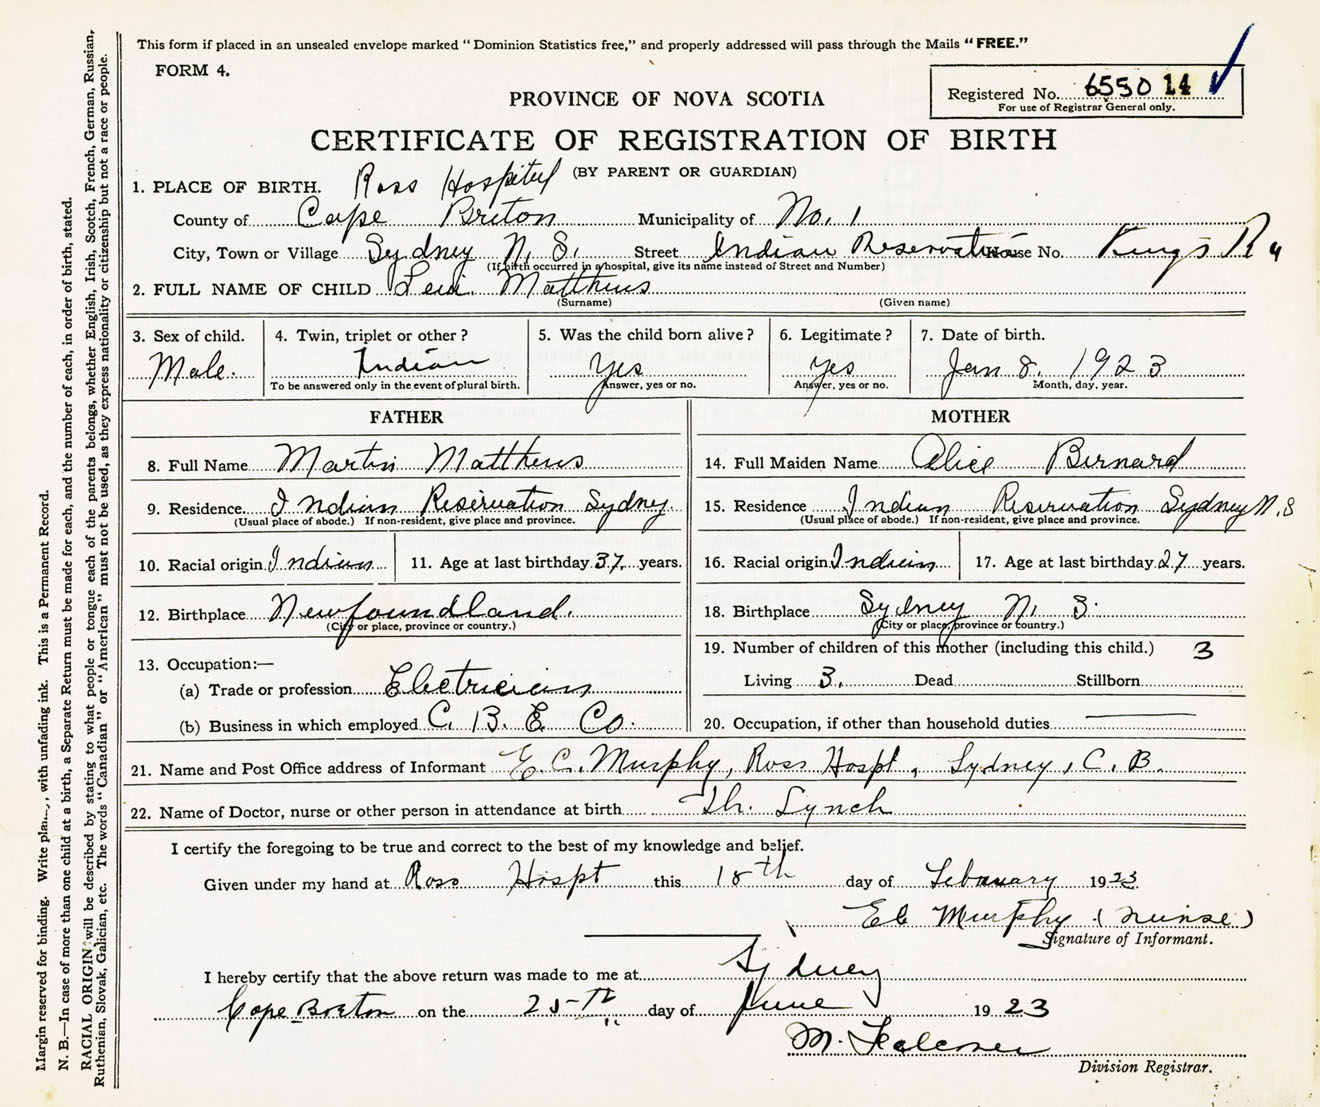 This form if placed in an unsealed envelope marked "Dominion Statistics free," and properly addressed will pass through the Mails "FREE."
FORM 4.
Registered No. 6550 14
For use of Registrar General only.
PROVINCE OF NOVA SCOTIA
CERTIFICATE OF REGISTRATION OF BIRTH
(BY PARENT OR GUARDIAN)
1. PLACE OF BIRTH. Ross Hospital
County of Cape Breton Municipality of No. 1
City, Town or Village Sydney N. S. Street Indian Reservation House No. Kings R
(If birth occurred in a hospital, give its name instead of Street and Number)
2. FULL NAME OF CHILD Matthews
(Surname) (Given name)
3. Sex of child. Male.
4. Twin, triplet or other? Indian
To be answered only in the event of plural birth.
5. Was the child born alive? Yes
Answer, yes or no.
6. Legitimate? Yes
Answer, yes or no.
7. Date of birth. Jan 8. 1923
Month, day, year.
FATHER
8. Full Name Martin Matthews
9. Residence. Indian Reservation Sydney.
(Usual place of abode.) If non-resident, give place and province.
10. Racial origin Indian 11. Age at last birthday 37 years.
12. Birthplace Newfoundland.
(City or place, province or country.)
13. Occupation:—
(a) Trade or profession Electrician
(b) Business in which employed C. B. E. Co.
MOTHER
14. Full Maiden Name Alice Bernard
15. Residence Indian Reservation Sydney N. S
(Usual place of abode.) If non-resident, give place and province.
16. Racial origin Indian 17. Age at last birthday 27 years.
18. Birthplace Sydney N. S.
(City or place, province or country.)
19. Number of children of this mother (including this child.) 3
Living 3. Dead Stillborn
20. Occupation, if other than household duties
21. Name and Post Office address of Informant E. C. Murphy, Ross Hospt, Sydney, C. B.
22. Name of Doctor, nurse or other person in attendance at birth Lynch
I certify the foregoing to be true and correct to the best of my knowledge and belief.
Given under my hand at Ross Hospt this 18th day of Febuary 1923
EC Murphy (nurse)
Signature of Informant.
I hereby certify that the above return was made to me at Sydney
Cape Breton on the 25th day of June 1923
M.
Division Registrar.
Margin reserved for binding. Write with unfading ink. This is a Permanent Record.
N. B.—In case of more than one child at a birth, a Separate Return must be made for each, and the number of each, in order of birth, stated.
RACIAL ORIGIN will be described by stating to what people or tongue each of the parents belongs, whether English, Irish, Scotch, French, German, Russian,
Ruthenian, Slovak, Galician, etc. The words "Canadian" or "American" must not be used, as they express nationality or citizenship but not a race or people.